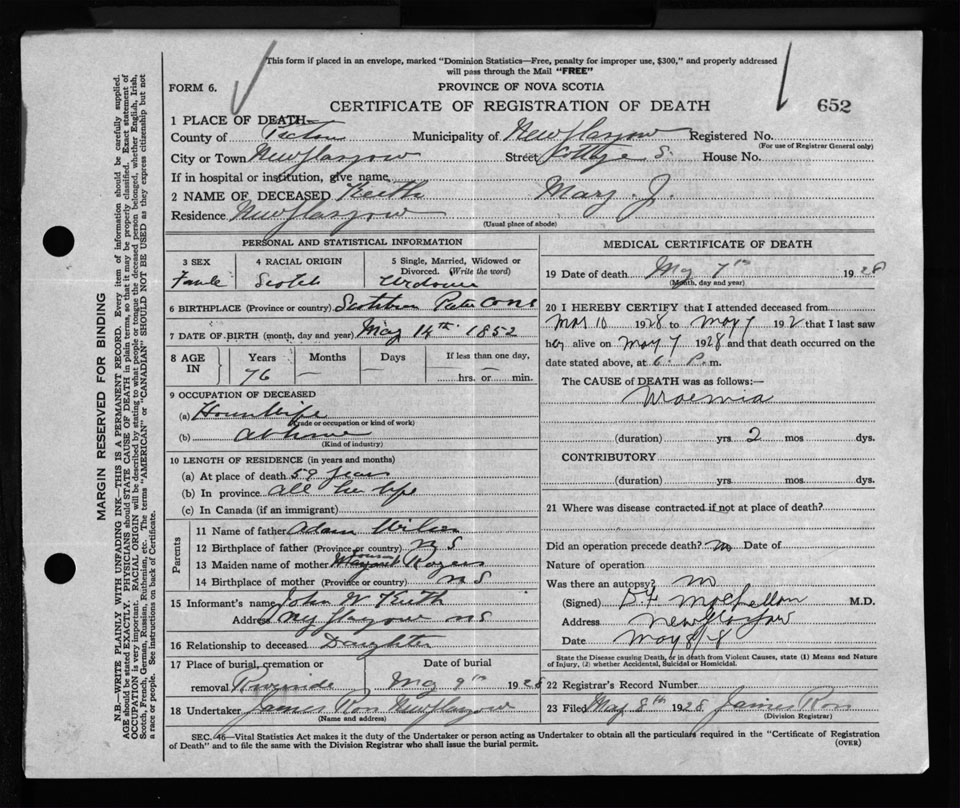 This form if placed in an envelope, marked "Dominion Statistics—Free, penalty for improper use, $300," and properly addressed
will pass through the Mail "FREE"
FORM 6.
PROVINCE OF NOVA SCOTIA
CERTIFICATE OF REGISTRATION OF DEATH
652
1 PLACE OF DEATH—
County of Pictou Municipality of New Glasgow Registered No.
(For use of Registrar General only)
City or Town New Glasgow Street S. House No.
If in hospital or institution, give name
2 NAME OF DECEASED Keith Mary J.
Residence New Glasgow
(Usual place of abode)
PERSONAL AND STATISTICAL INFORMATION
3 SEX
4 RACIAL ORIGIN
5 Single, Married, Widowed or Divorced. (Write the word)
Female
Scotch
Widow
6 BIRTHPLACE (Province or country)
7 DATE OF BIRTH (month, day and year) May 14th 1852
8 AGE IN
Years
Months
Days
If less than one day,
76 — —
hrs. or min.
9 OCCUPATION OF DECEASED
(a) Housewife
(Trade or occupation or kind of work)
(b) at home
(Kind of industry)
10 LENGTH OF RESIDENCE (in years and months)
(a) At place of death 59 years
(b) In province all her life
(c) In Canada (if an immigrant)
Parents
11 Name of father Adam Wilson
12 Birthplace of father (Province or country) N S
13 Maiden name of mother Margaret Rogers
14 Birthplace of mother (Province or country) N S
15 Informant's name John W Keith
Address New Glasgow N S
16 Relationship to deceased Daughter
17 Place of burial, cremation or
Date of burial
removal Riverside May 9th 1928
18 Undertaker James Ross New Glasgow
(Name and address)
MEDICAL CERTIFICATE OF DEATH
19 Date of death May 7th 1928
(Month, day and year)
20 I HEREBY CERTIFY that I attended deceased from
Mar 10 1928 to May 7 192 that I last saw
her alive on May 7 1928 and that death occurred on the
date stated above, at 6 P. m.
The CAUSE OF DEATH was as follows:—
Uraemia
(duration) yrs 2 mos dys.
CONTRIBUTORY
(duration) yrs. mos. dys.
21 Where was disease contracted if not at place of death?
Did an operation precede death? no Date of
Nature of operation
Was there an autopsy? no
(Signed) M.D.
Address New Glasgow
Date May 8/28
State the Disease causing Death, or in death from Violent Causes, state (1) Means and Nature
of Injury, (2) whether Accidental, Suicidal or Homicidal.
22 Registrar's Record Number
23 Filed May 8th 1928 James Ross
(Division Registrar)
SEC. 46—Vital Statistics Act makes it the duty of the Undertaker or person acting as Undertaker to obtain all the particulars required in the "Certificate of Registration
of Death" and to file the same with the Division Registrar who shall issue the burial permit.
(OVER)
MARGIN RESERVED FOR BINDING
N.B.—WRITE PLAINLY WITH UNFADING INK—THIS IS A PERMANENT RECORD. Every item of information should be carefully supplied.
AGE should be stated EXACTLY. PHYSICIANS should STATE CAUSE OF DEATH in plain terms, so that it may be properly classified. Exact statement of
OCCUPATION is very important. RACIAL ORIGIN will be described by stating to what people or tongue the deceased person belonged, whether English, Irish,
Scotch, French, German, Russian, Ruthenian, etc. The terms "AMERICAN" or "CANADIAN" SHOULD NOT BE USED as they express citizenship but not
a race or people. See instructions on back of Certificate.